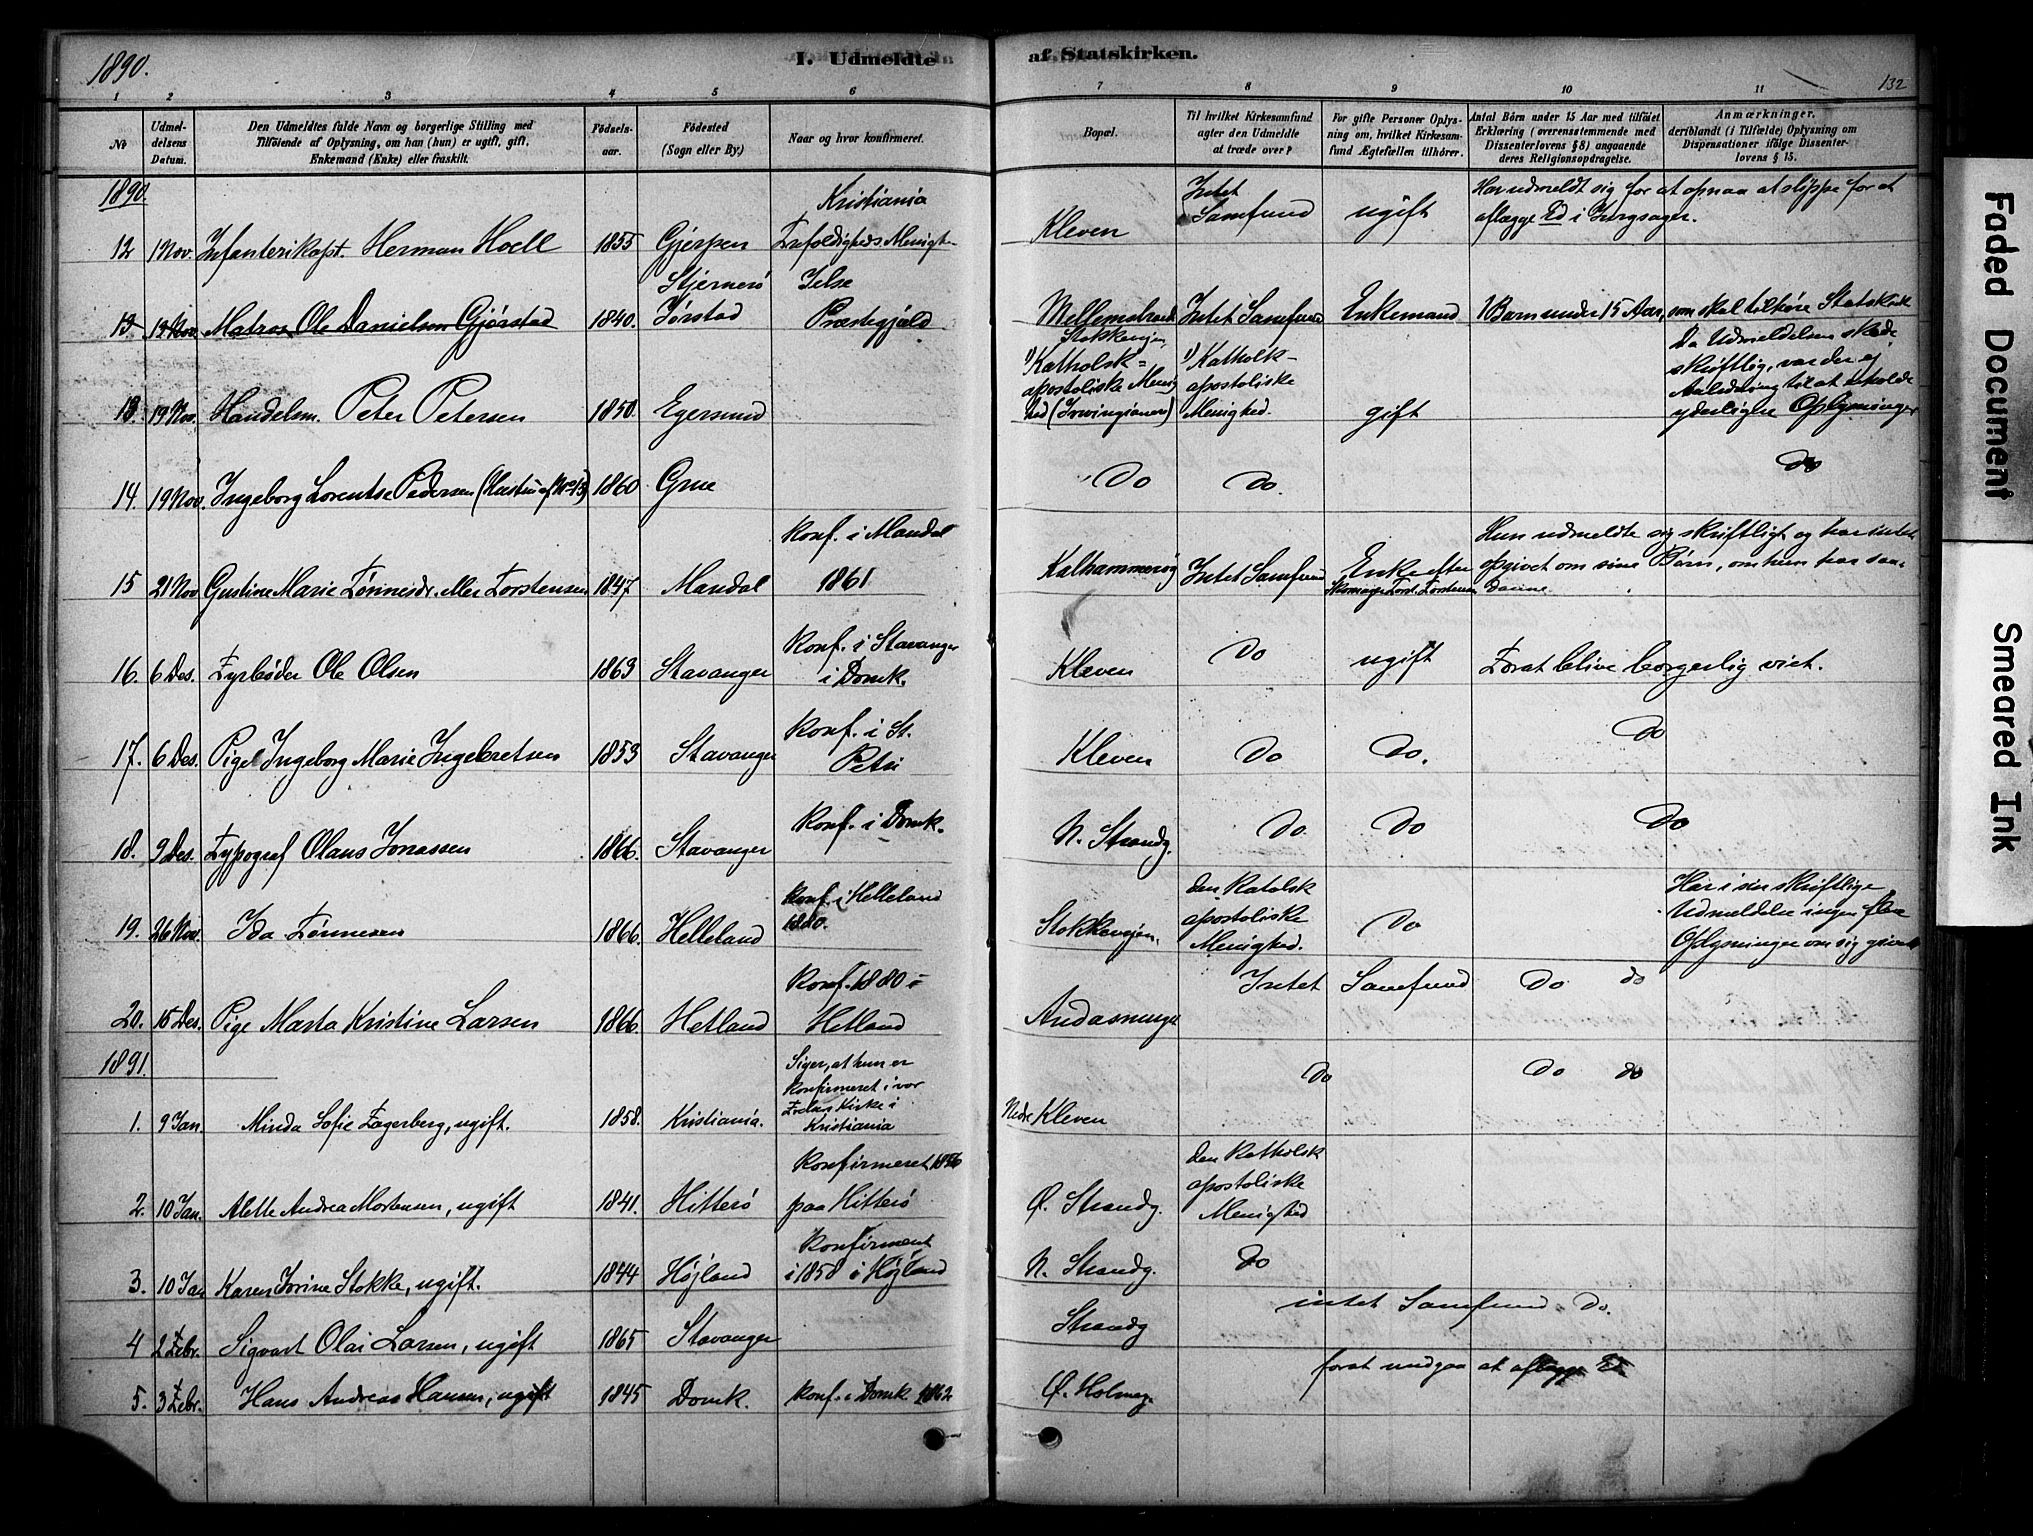 1890.
I. Udmeldte af Statskirken.
132
1 2 3 4 5 6 7 8 9 10 11
No
Udmeldelsens Datum.
Den Udmeldtes fulde Navn og borgerlige Stilling med
Tilføiende af Oplysning, om han (hun) er ugift, gift,
Enkemand (Enke) eller fraskilt.
Fødselsaar.
Fødested
(Sogn eller By.)
Naar og hvor konfirmeret.
Bopæl.
Til hvilket Kirkesamfund
agter den Udmeldte
at træde over?
For gifte Personer Oplysning om, hvilket Kirkesamfund Ægtefællen tilhører.
Antal Børn under 15 Aar med tilføiet
Erklæring (overensstemmende med
Dissenterlovens § 8) angaaende
deres Religionsopdragelse.
Anmærkninger,
deriblandt (i Tilfælde) Oplysning om
Dispensationer ifølge Dissenterlovens § 15.
1890.
12 1 Nov. Infanterikapt. Herman Hoell 1855 Gjerpen Kristiania Trefoldigheds Menigh. Kleven Intet Samfund ugift Har udmeldt sig for at opnaa at slippe for at
aflægge Ed i
13 Matros Ole Danielsen Gjørstad 1840. Stjernerø Jørstad Jelse Præstegjæld Intet Samfund Enkemand 1 Barn under 15 Aar, som skal tilhøre Statskirk
13. 19 Nov. Handelsm. Peter Petersen 1850. Egersund Stokkevejen
1) Katholsk=
apostoliske Menig
hed (Irvingianere)
1) Katholk-
apostoliske
Menighed.
gift
Da Udmeldelsen skede
skriftlig, var der ej
Anledning til at erholde
yderligere Oplysninger
14. 19 Nov. Ingeborg Lorentse Pedersen (Hustru af No 13) 1860 Grue Do Do. Do
15 21 Nov Gustine Marie Tønnesdr. eller Torstensen 1847 Mandal Konf. i Mandal
1861
Kalhammervig Intet Samfund Enke efter
Skomager Torst. Torstensen
Hun udmeldte sig skriftligt og har intet
opgivet om sine Børn, om hun har saa-
danne.
16. 6 Des. Fyrbøder Ole Olsen 1863 Stavanger Konf. i Stavanger
i Domk.
Kleven Do ugift For at blive borgerlig viet.
17. 6 Des. Pige Ingeborg Marie Ingebretsen 1853 Stavanger Konf. i St.
Petri
Kleven Do Do. Do
18. 9 Des. Typograf Olaus Jonassen 1866. Stavanger Konf. i Domk. N. Strandg. Do Do Do
19. 26 Nov. Ida Tønnesen 1866. Helleland Konf. i Helleland
1880.
Stokkevejen. den Katolsk
apostoliske
Menighed.
Do
Har i sin skriftlige
Udmeldelse ingen flere
Oplysninger om sig givet
20. 15 Des. Pige Marta Kristine Larsen 1866. Hetland Konf. 1880 i
Hetland
Intet Samfund Do do
1891.
1. 9 Jan. Minda Sofie Fagerberg, ugift. 1858. Kristiania. Siger, at hun er
konfirmeret i vor
Frelsers Kirke i
Kristiania
Nedre Kleven Do Do do
2. 10 Jan. Alette Andrea Mortensen, ugift 1841. Hitterø Konfirmeret 1856
paa Hitterø
Ø. Strandg. den Katholsk
apostoliske
Menighed
3. 10 Jan Karen Jorine Stokke, ugift. 1844 Højland Konfirmeret
i 1858 i Højland
N. Strandg. Do
4 2 Febr. Sigvart Olai Larsen, ugift 1865 Stavanger Strandg intet Samfund Do.
5. 3 Febr. Hans Andreas Hansen, ugift 1845 Domk. Konf. i Domk 1862 Ø. Holmeg. for at undgaa at aflægge Ed
Faded Document
Smeared Ink